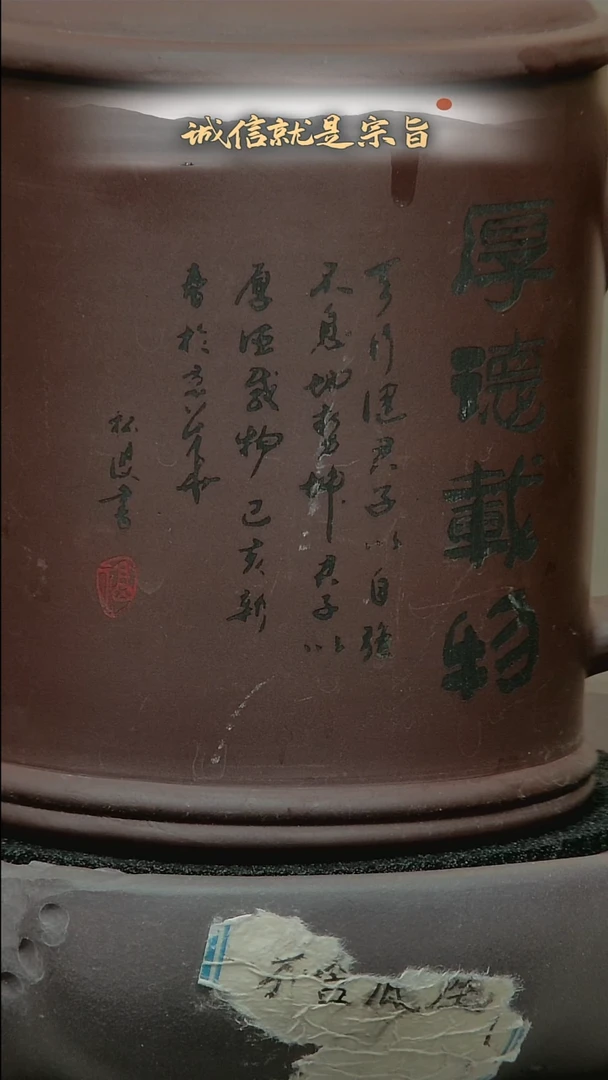 诚信就是宗旨
厚德载物
天行健君子以自强
不息地势坤君子以
厚德载物己亥新
春於京華
書